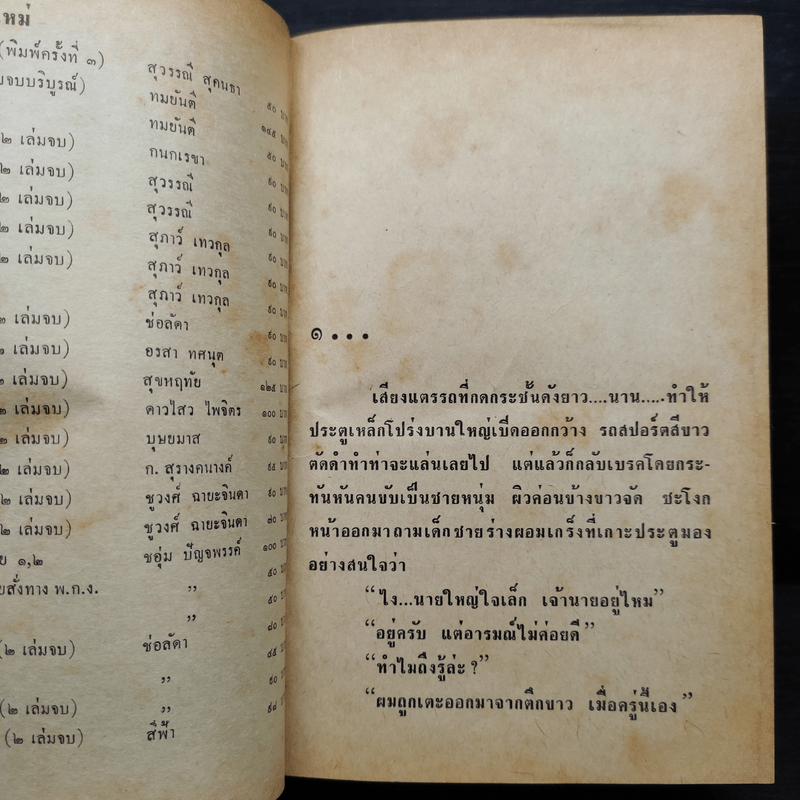 ใหม่
(พิมพ์ครั้งที่ ๓) สุวรรณี สุคนธา
จบบริบูรณ์) ทมยันตี ๕๐ บาท
ทมยันตี ๑๔๕ บาท
๒ เล่มจบ) กนกเรขา ๕๐ บาท
๒ เล่มจบ) สุวรรณี
๒ เล่มจบ) สุวรรณี
๒ เล่มจบ) สุภาว์ เทวกุล
๒ เล่มจบ) สุภาว์ เทวกุล
สุภาว์ เทวกุล
๒ เล่มจบ) ช่อลัดา
๒ เล่มจบ) อรสา ทศนุต
๒ เล่มจบ) สุขหฤทัย ๑๒๕
๒ เล่มจบ) ดาวไสว ไพจิตร ๑๐๐
๒ เล่มจบ) บุษยมาส
๒ เล่มจบ) ก. สุรางคนางค์
๒ เล่มจบ) ชูวงศ์ ฉายะจินดา
๒ เล่มจบ) ชูวงศ์ ฉายะจินดา ๘๐
๑,๒ ชอุ่ม ปัญจพรรค์ ๑๐๐
สั่งทาง พ.ก.ง. ” ๕๐
” ๕๐
(๒ เล่มจบ) ช่อลัดา ๘๐
” ๔๕
(๒ เล่มจบ) ”
(๒ เล่มจบ) สีฟ้า
๑...
เสียงแตรรถที่กดกระชั้นดังยาว....นาน.....ทำให้
ประตูเหล็กโปร่งบานใหญ่เปิดออกกว้าง รถสปอร์ตสีขาว
ตัดดำทำท่าจะแล่นเลยไป แต่แล้วก็กลับเบรคโดยกระ-
ทันหันคนขับเป็นชายหนุ่ม ผิวค่อนข้างขาวจัด ชะโงก
หน้าออกมาถามเด็กชายร่างผอมเกร็งที่เกาะประตูมอง
อย่างสนใจว่า
“ไง...นายใหญ่ใจเล็ก เจ้านายอยู่ไหม”
“อยู่ครับ แต่อารมณ์ไม่ค่อยดี”
“ทำไมถึงรู้ล่ะ ?”
“ผมถูกเตะออกมาจากตึกขาว เมื่อครู่นี้เอง”